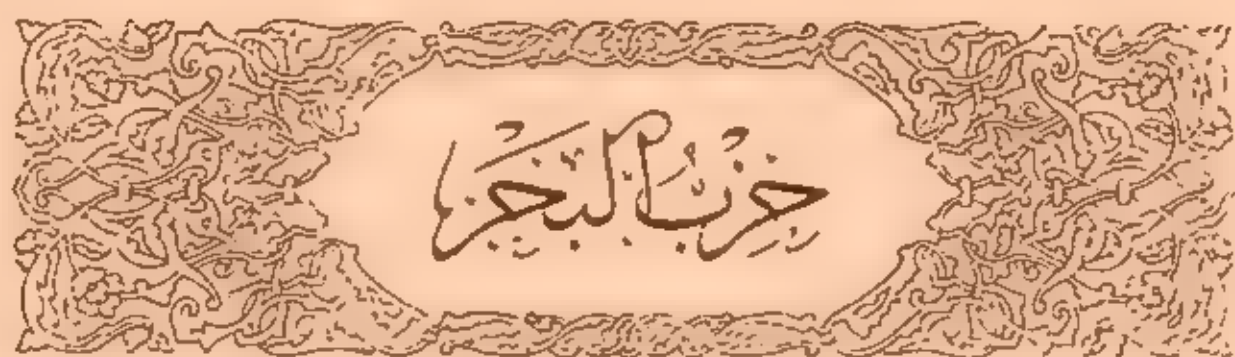 حِزْبُ الْبَحْرِ